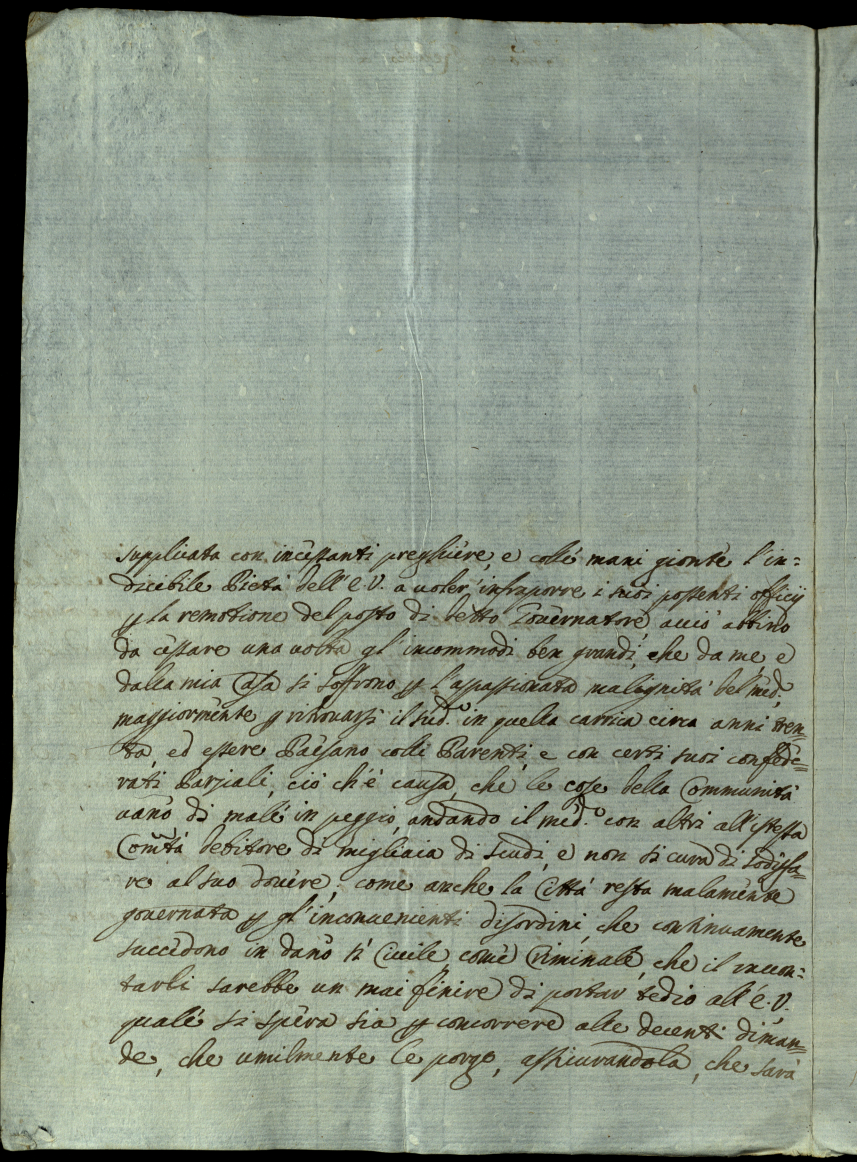 supplicata con incessanti preghiere, e colle mani gionte l'in=
dicebile Pietà dell'E.V. a voler infraporre i suoi possenti officij
p la remotione del posto di detto Governatore, acciò abbino
da cessare una volta gl'incommodi ben grandi, che da me, e
dalla mia Casa si soffrono p l'appassionata malignità del med.º,
maggiormente p ritrovarsi il sud.º in quella carrica circa anni tren=
ta, ed essere Paesano colli Parenti, e con certi suoi confede=
rati Parziali, ciò ch'è causa, che le cose della Communità
vano di male in peggio, andando il med.º con altri all'istessa
Com̃tà debitore di migliaia di scudi, e non si cura di sodisfa=
re al suo dovere; come anche la Città resta malamente
governata p gl'inconvenienti disordini, che continuamente
succedono in dano sì Civile come Criminale, che il raccon=
tarli sarebbe un mai finire di portar tedio all'E.V.
quale si spera sia p concorrere alle decenti diman=
de, che umilmente le porgo, assicurandola, che sarà